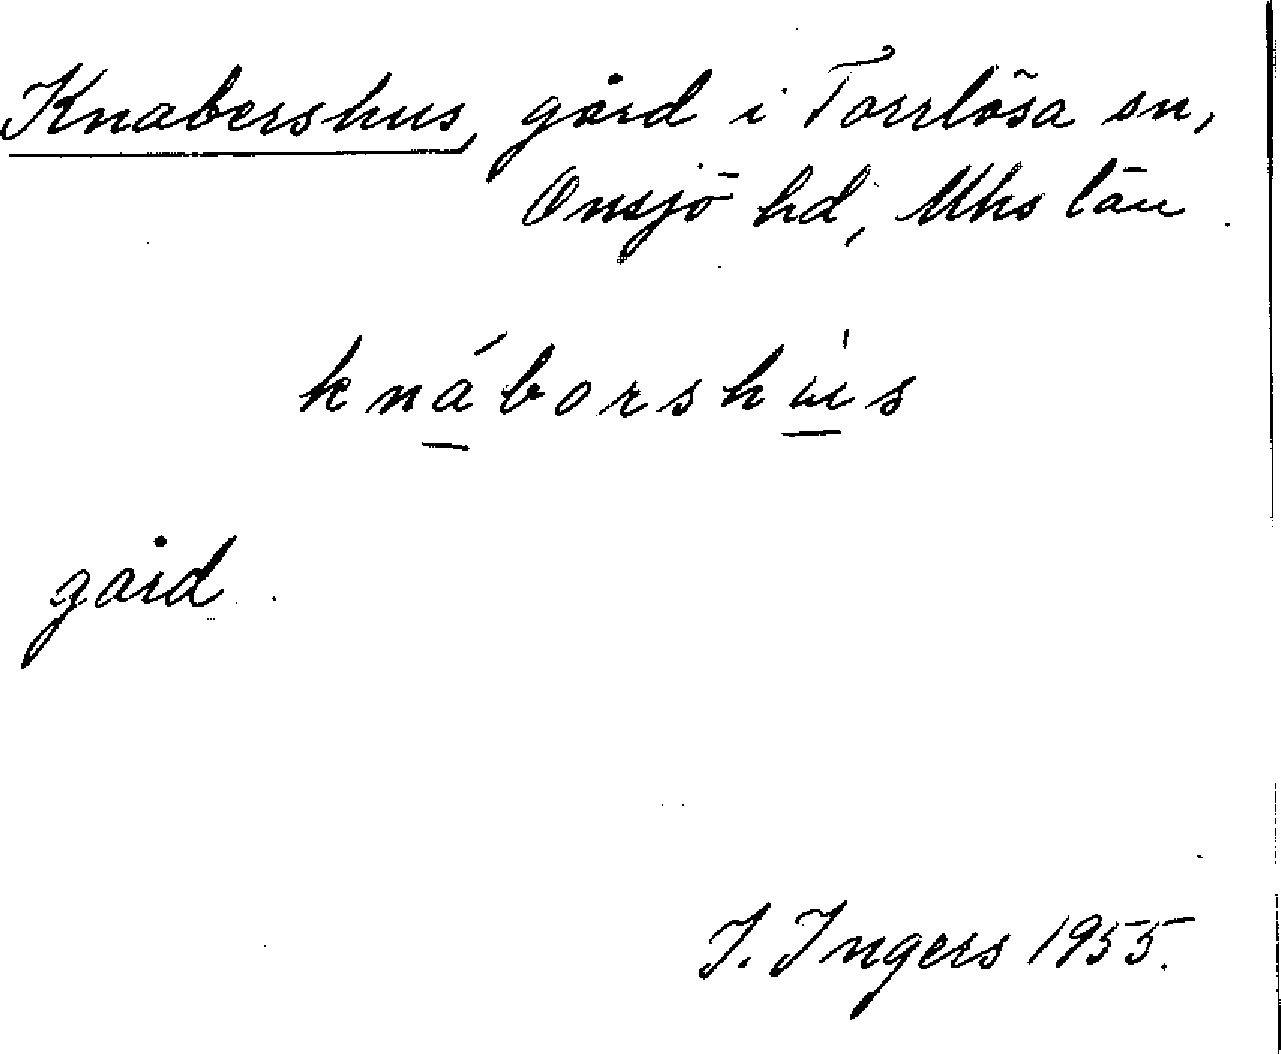 Knabershus, gård i Torrlösa sn,
Onsjö hd, Mhs län.
knáborshùs
gård.
I. Ingers 1955.